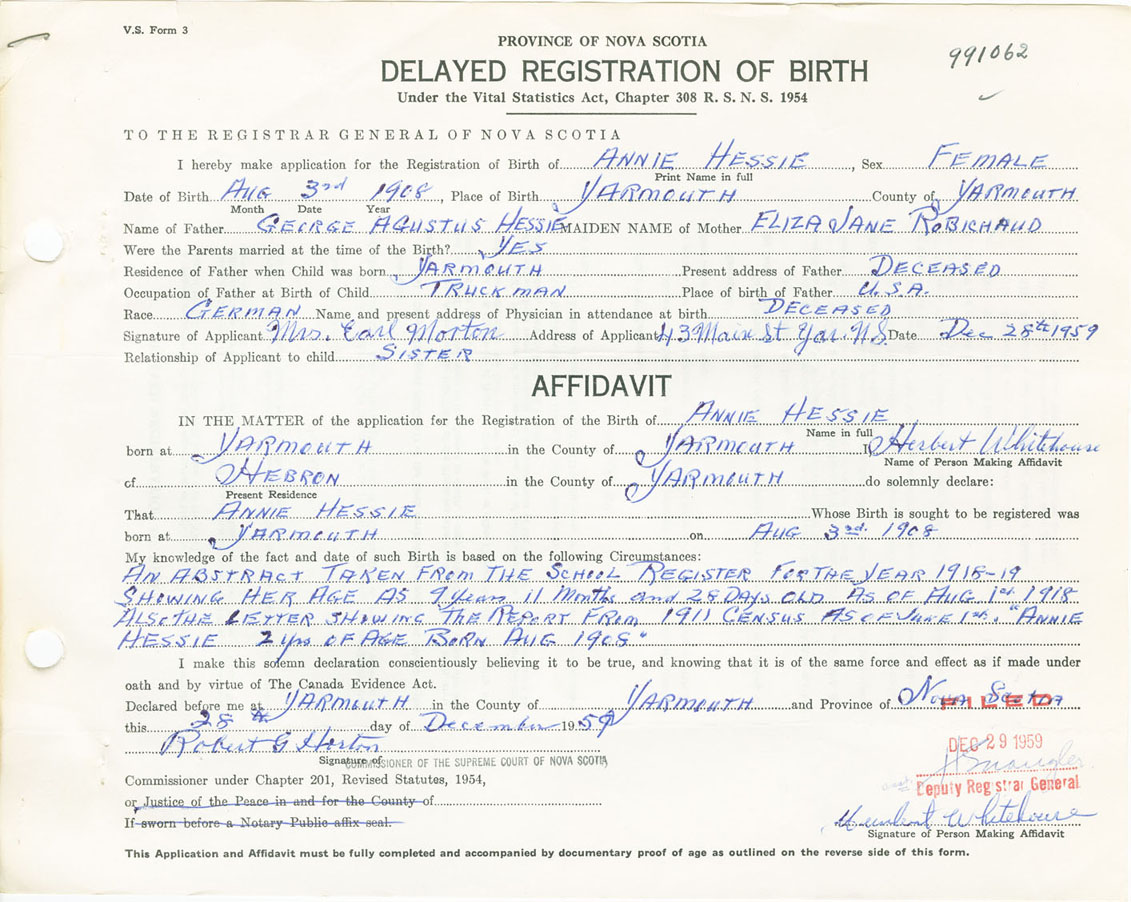 V.S. Form 3
PROVINCE OF NOVA SCOTIA
991062
DELAYED REGISTRATION OF BIRTH
Under the Vital Statistics Act, Chapter 308 R. S. N. S. 1954
TO THE REGISTRAR GENERAL OF NOVA SCOTIA
I hereby make application for the Registration of Birth of ANNIE HESSIE, Sex FEMALE
Print Name in full
Date of Birth AUG 3rd 1908, Place of Birth YARMOUTH County of YARMOUTH
Month Date Year
Name of Father GEORGE AGUSTUS HESSIE MAIDEN NAME of Mother ELIZA JANE ROBICHAUD
Were the Parents married at the time of the Birth? YES
Residence of Father when Child was born YARMOUTH Present address of Father DECEASED
Occupation of Father at Birth of Child TRUCKMAN Place of birth of Father U.S.A.
Race GERMAN Name and present address of Physician in attendance at birth DECEASED
Signature of Applicant Mrs. Earl Morton Address of Applicant 43 Main St Yar. N.S. Date Dec 28th 1959
Relationship of Applicant to child SISTER
AFFIDAVIT
IN THE MATTER of the application for the Registration of the Birth of ANNIE HESSIE
Name in full
born at YARMOUTH in the County of YARMOUTH I Herbert Whitehouse
Name of Person Making Affidavit
of HEBRON in the County of YARMOUTH do solemnly declare:
Present Residence
That ANNIE HESSIE Whose Birth is sought to be registered was
born at YARMOUTH on AUG 3rd. 1908
My knowledge of the fact and date of such Birth is based on the following Circumstances:
AN ABSTRACT TAKEN FROM THE SCHOOL REGISTER FOR THE YEAR 1918-19
SHOWING HER AGE AS 9 Years 11 Months and 28 DAYS OLD AS OF AUG 1st 1918
ALSO THE LETTER SHOWING THE REPORT FROM 1911 CENSUS AS OF JUNE 1st. "ANNIE
HESSIE 2 yrs OF AGE BORN AUG 1908"
I make this solemn declaration conscientiously believing it to be true, and knowing that it is of the same force and effect as if made under
oath and by virtue of The Canada Evidence Act.
Declared before me at YARMOUTH in the County of YARMOUTH and Province of Nova Scotia
FILED
this 28th day of December 1959
Robert G Horton
DEC 29 1959
Signature of COMMISSIONER OF THE SUPREME COURT OF NOVA SCOTIA
Commissioner under Chapter 201, Revised Statutes, 1954,
Deputy Registrar General
or Justice of the Peace in and for the County of
Herbert Whitehouse
If sworn before a Notary Public affix seal.
Signature of Person Making Affidavit
This Application and Affidavit must be fully completed and accompanied by documentary proof of age as outlined on the reverse side of this form.